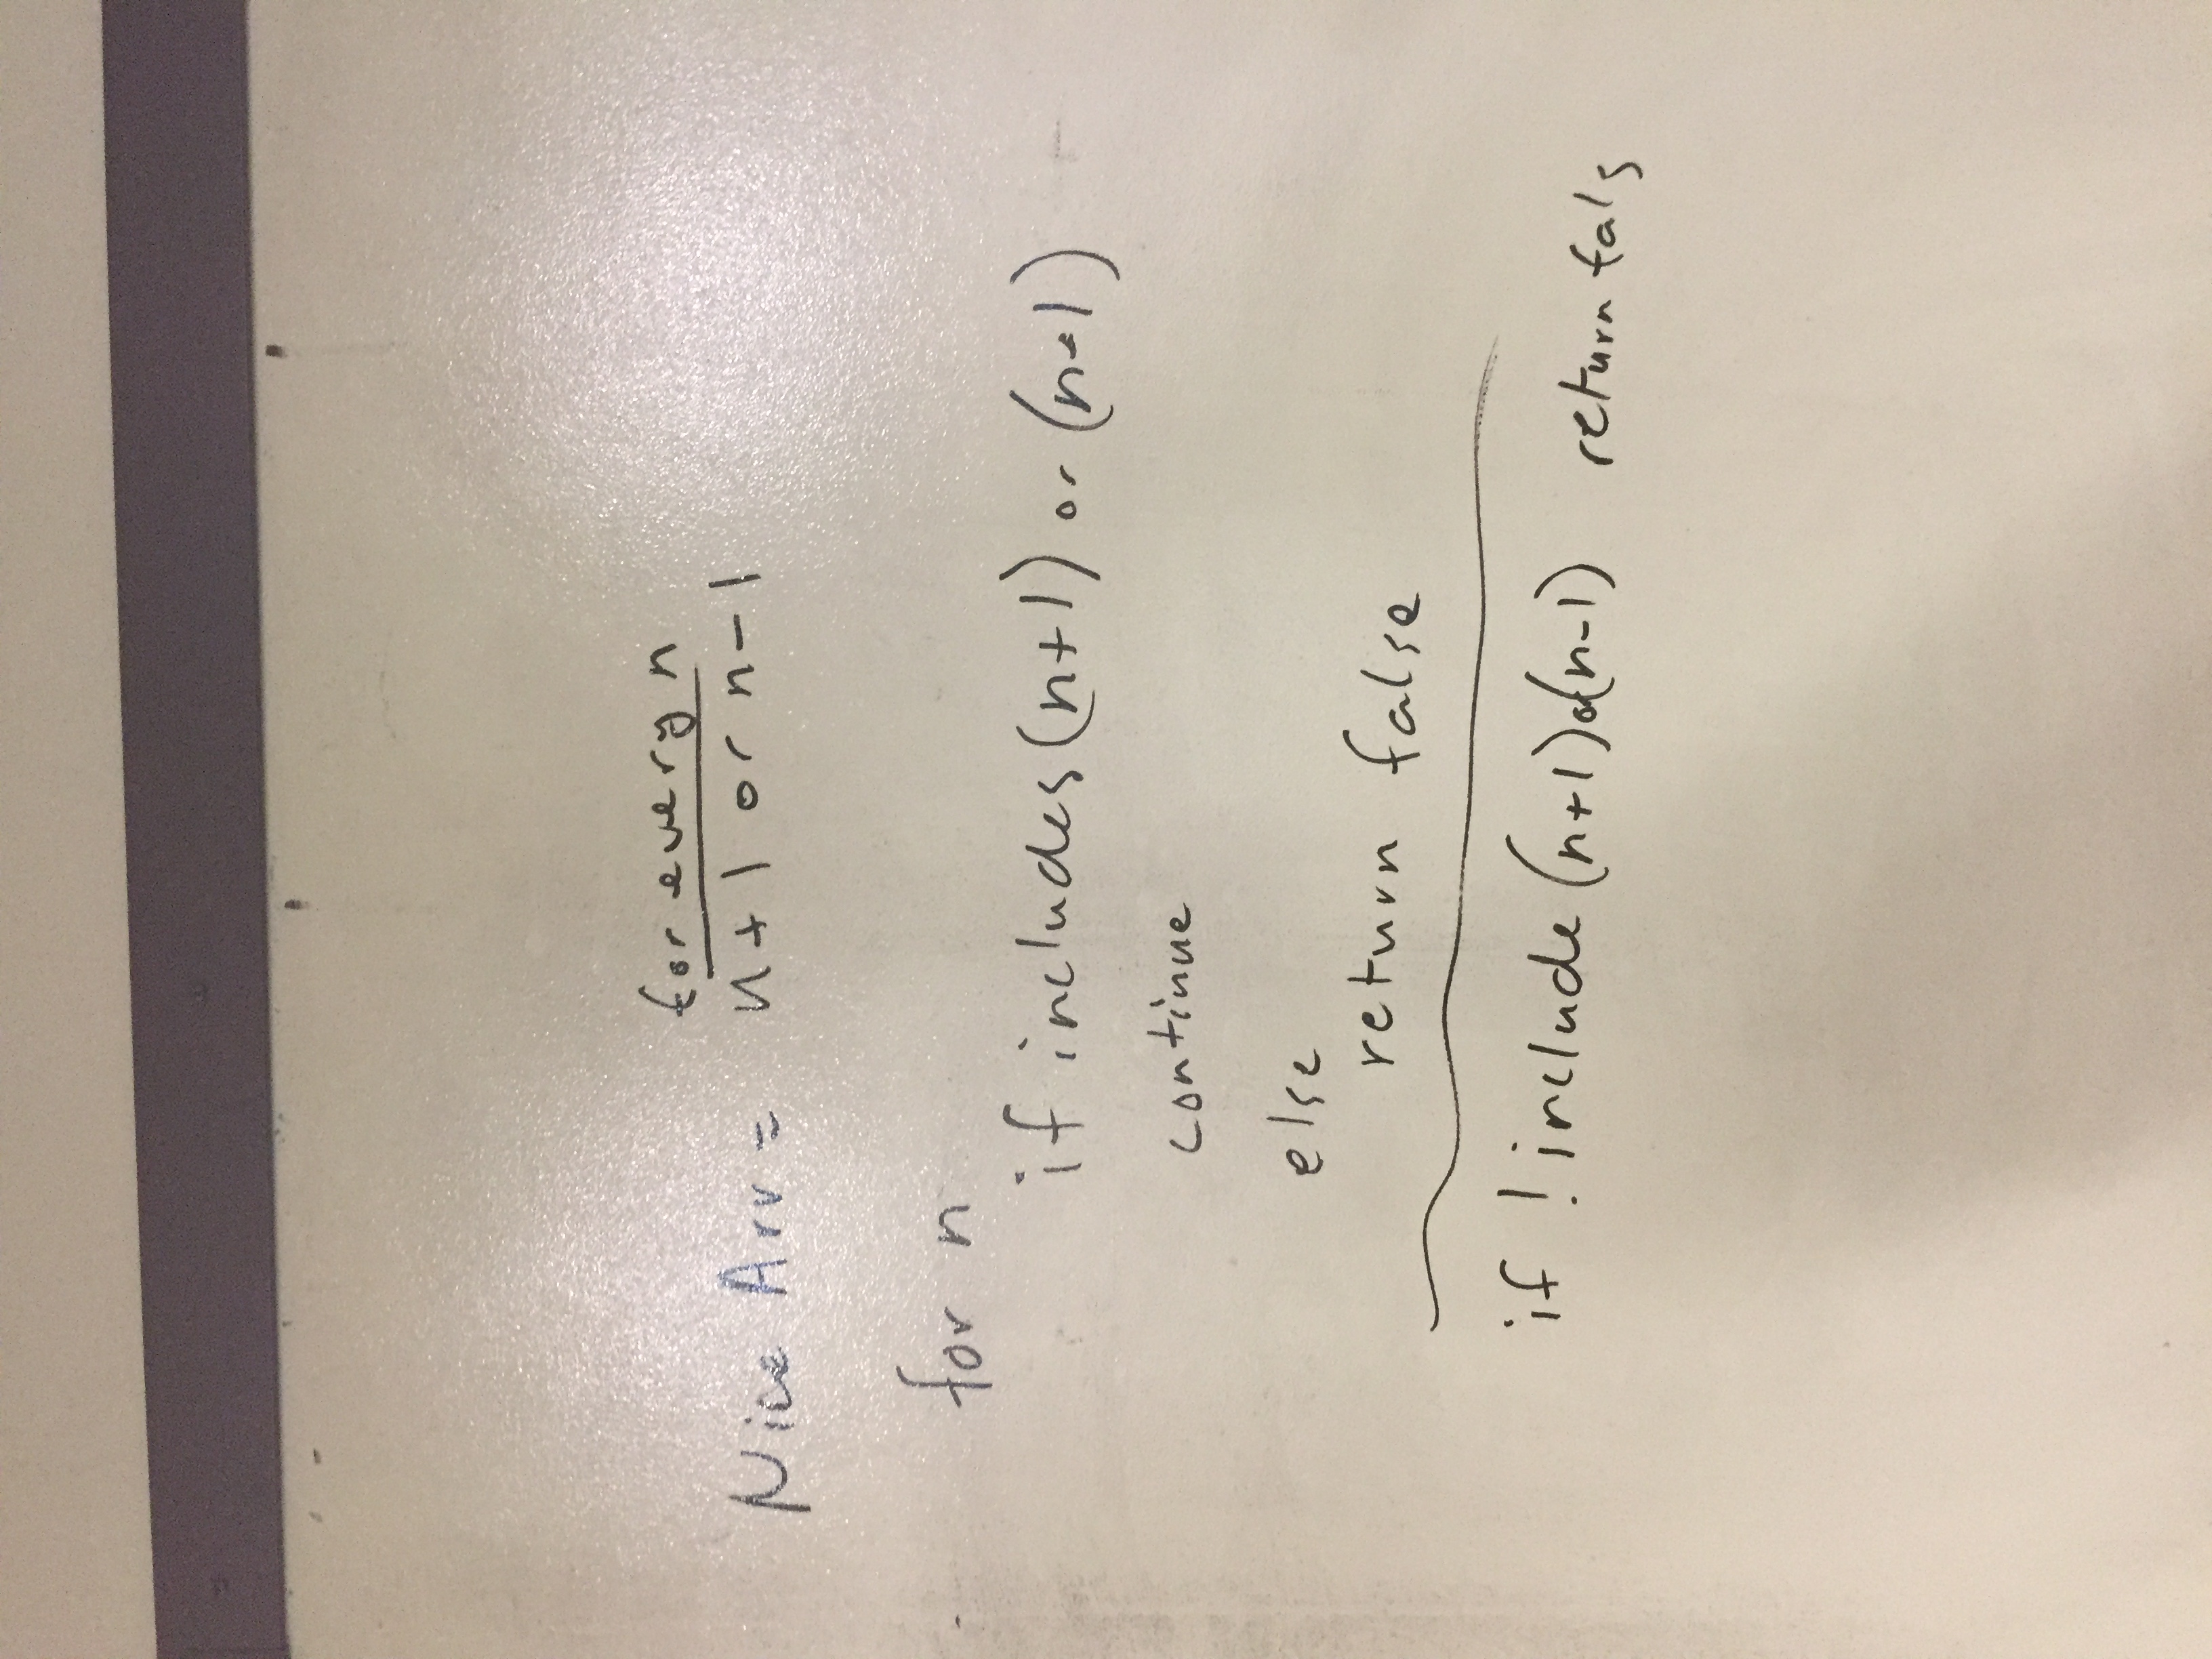 for every n
Nice Arr = n+1 or n-1
for n
if includes(n+1) or (n-1)
continue
else
return false
if !include(n+1)or(n-1) return fals